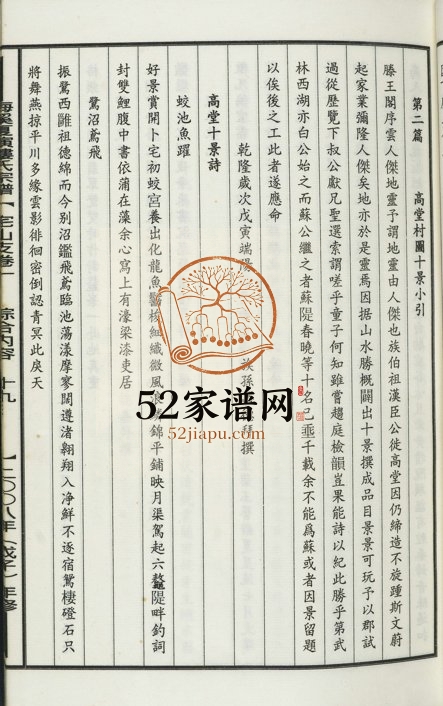 第二篇　高堂村圖十景小引
滕王閣序雲人傑地靈予謂地靈由人傑也族伯祖漢臣公徙高堂因仍締造不旋踵斯文蔚
起家業彌隆人傑矣地亦於是靈焉因据山水勝概闢出十景撰成品目景景可玩予以郡試
過從歷覽下叔公獻兄聖選索謂嗟乎童子何知雖嘗趨庭檢韻豈果能詩以紀此勝乎第武
林西湖亦白公始之而蘇公繼之者蘇隄春曉等十名已垂千載余不能爲蘇或者因景留題
以俟後之工此者遂應命
乾隆歲次戊寅端陽 族孫 拜撰
高堂十景詩
蛟池魚躍
好景賞開卜宅初蛟宮養出化龍魚 梭組織微風 錦平鋪映月渠駕起六鰲隄畔釣詞
封雙鯉腹中書依蒲在藻余心寫上有濠梁漆吏居
鷺沼鳶飛
振鷺西雝祖德綿而今別沼鑑飛鳶臨池蕩漾摩寥闊遵渚翱翔入净鮮不逐宿鴛棲磴石只
將舞燕掠平川多緣雲影徘徊密倒認青冥此戾天
宅山支卷一
綜合內容
十九
二〇〇八年（戊子）年修
52家谱网
52jiapu.com